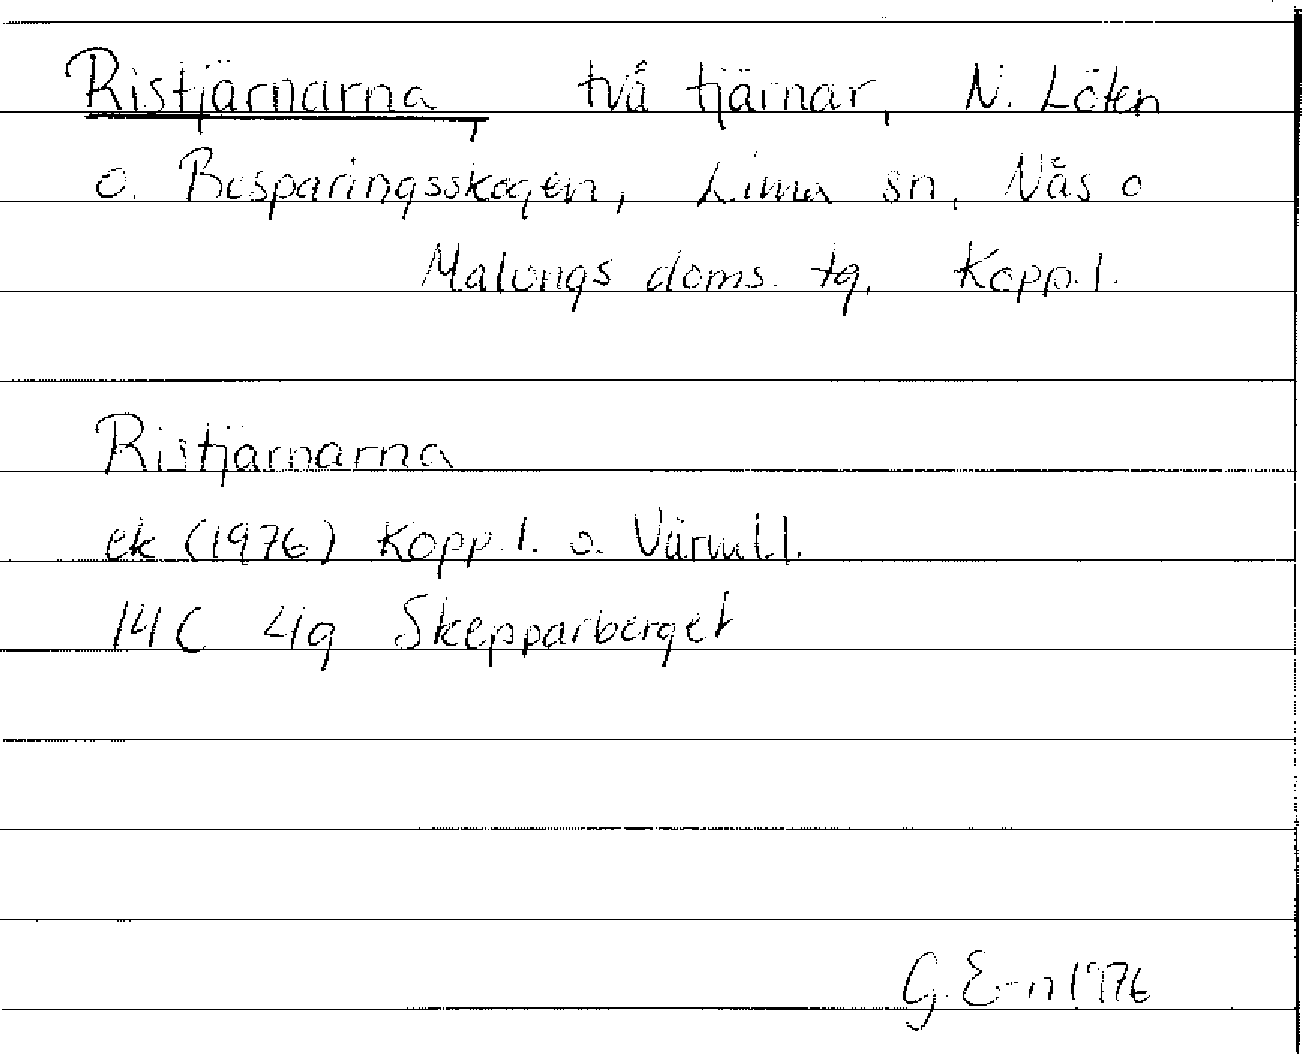 Ristjärnarna, två tjärnar, N. Löten
o. Besparingsskogen, Lima sn, Nås o
Malungs doms. tg. Kopp.l.
Ristjärnarna
ek (1976) Kopp.l. o. Värml.l.
14C 4g Skepparberget
G. E-n 1976